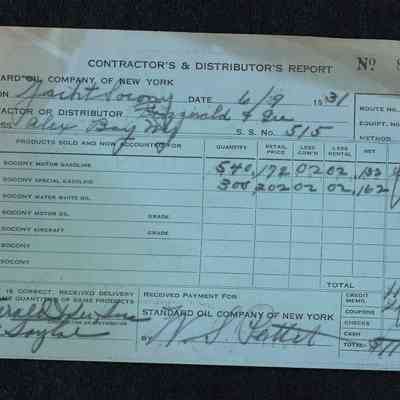 CONTRACTOR'S & DISTRIBUTOR'S REPORT Nº
DARD OIL COMPANY OF NEW YORK
ON Yacht Socony DATE 6/9 1931
ROUTE NO.
ACTOR OR DISTRIBUTOR Fitzgerald & Lee
EQUIPT. NO.
SS Alex Bay NY S. S. NO. 515
METHOD
PRODUCTS SOLD AND NOW ACCOUNTED FOR QUANTITY RETAIL PRICE LESS COM'N LESS RENTAL NET
SOCONY MOTOR GASOLINE 540 .172 02 02 .132
SOCONY SPECIAL GASOLINE 300 .202 02 02 .162
SOCONY WATER WHITE OIL
SOCONY MOTOR OIL GRADE
SOCONY AIRCRAFT GRADE
SOCONY
SOCONY
TOTAL
IS CORRECT. RECEIVED DELIVERY
ME QUANTITIES OF SAME PRODUCTS
RECEIVED PAYMENT FOR
STANDARD OIL COMPANY OF NEW YORK
BY
CREDIT MEMO.
COUPONS
CHECKS
CASH
TOTAL